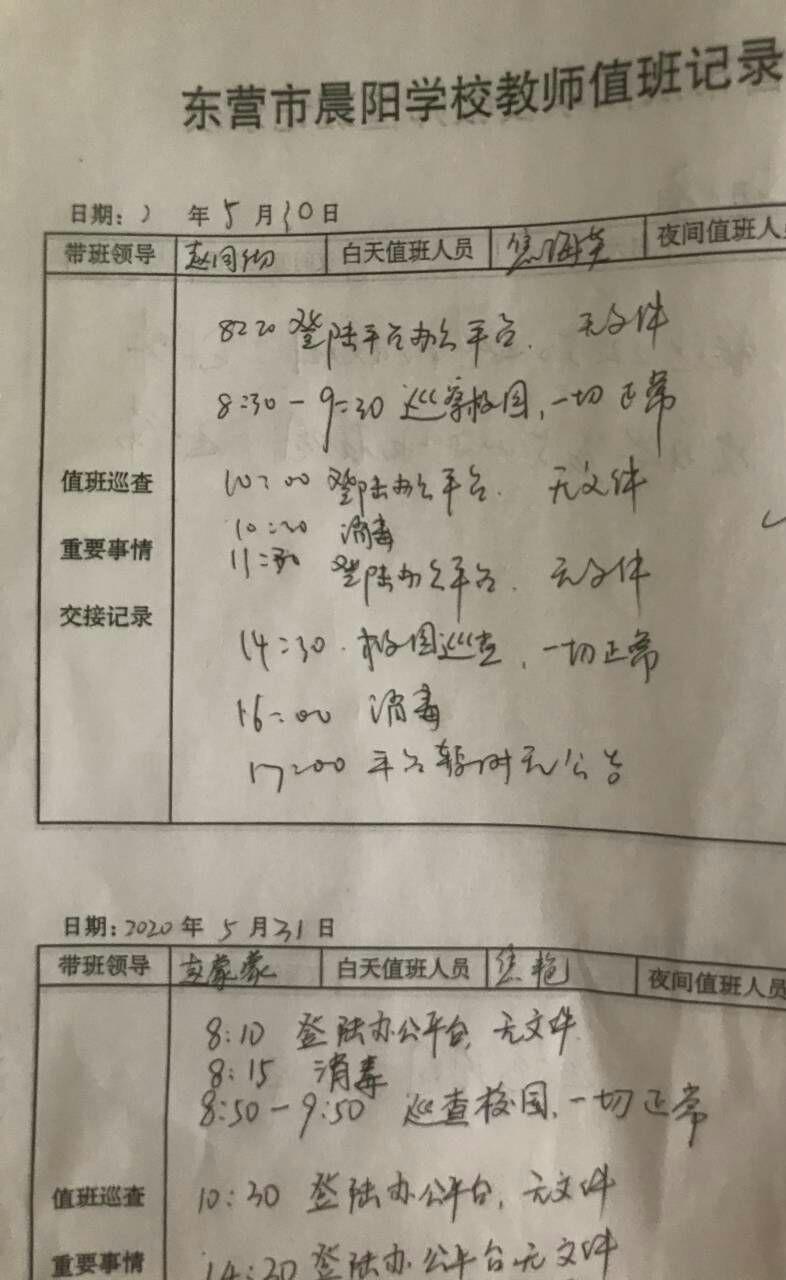 东营市晨阳学校教师值班记录
日期: 年 5 月 30 日
带班领导 白天值班人员 焦海英 夜间值班人员
8:20 登陆平台办公平台. 无文件
8:30-9:30 巡察校园,一切正常
值班巡查 10:00 登陆办公平台. 无文件
10:20 消毒
重要事情 11:30 登陆办公平台. 无文件
交接记录 14:30. 校园巡查,一切正常
16:00 消毒
17:00 平台暂时无公告
日期:2020 年 5 月 31 日
带班领导 袁蒙蒙 白天值班人员 焦艳 夜间值班人员
8:10 登陆办公平台,无文件
8:15 消毒
8:50-9:50 巡查校园,一切正常
值班巡查 10:30 登陆办公平台,无文件
重要事情 14:20 登陆办公平台无文件